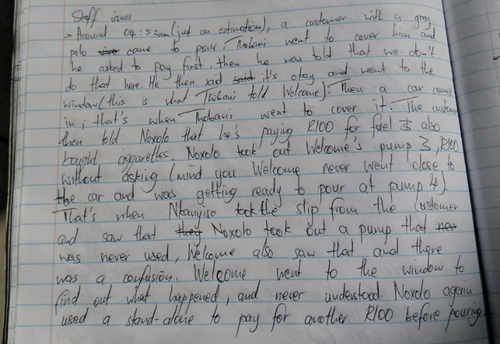 Staff issues
> Around 04:52am (just an estimation), a customer with a grey
polo came to pour. Thobani went to cover him and
he asked to pay first then he was told that we don't
do that here. He then said it's okay and went to the
window (this is what Thobani told Welcome). Then a car came
in, that's when Thobani went to cover it. The customer
then told Noxolo that he's paying R100 for fuel & also
bought cigarettes, Noxolo took out Welcome's pump 3, R100
without asking (mind you Welcome never went close to
the car and was getting ready to pour at pump 4).
That's when Ntanyiso took the slip from the customer
and saw that they Noxolo took out a pump that
was never used, Welcome also saw that and there
was a confusion. Welcome went to the window to
find out what happened, and never understood. Noxolo again
used a stand-alone to pay for another R100 before pouring.